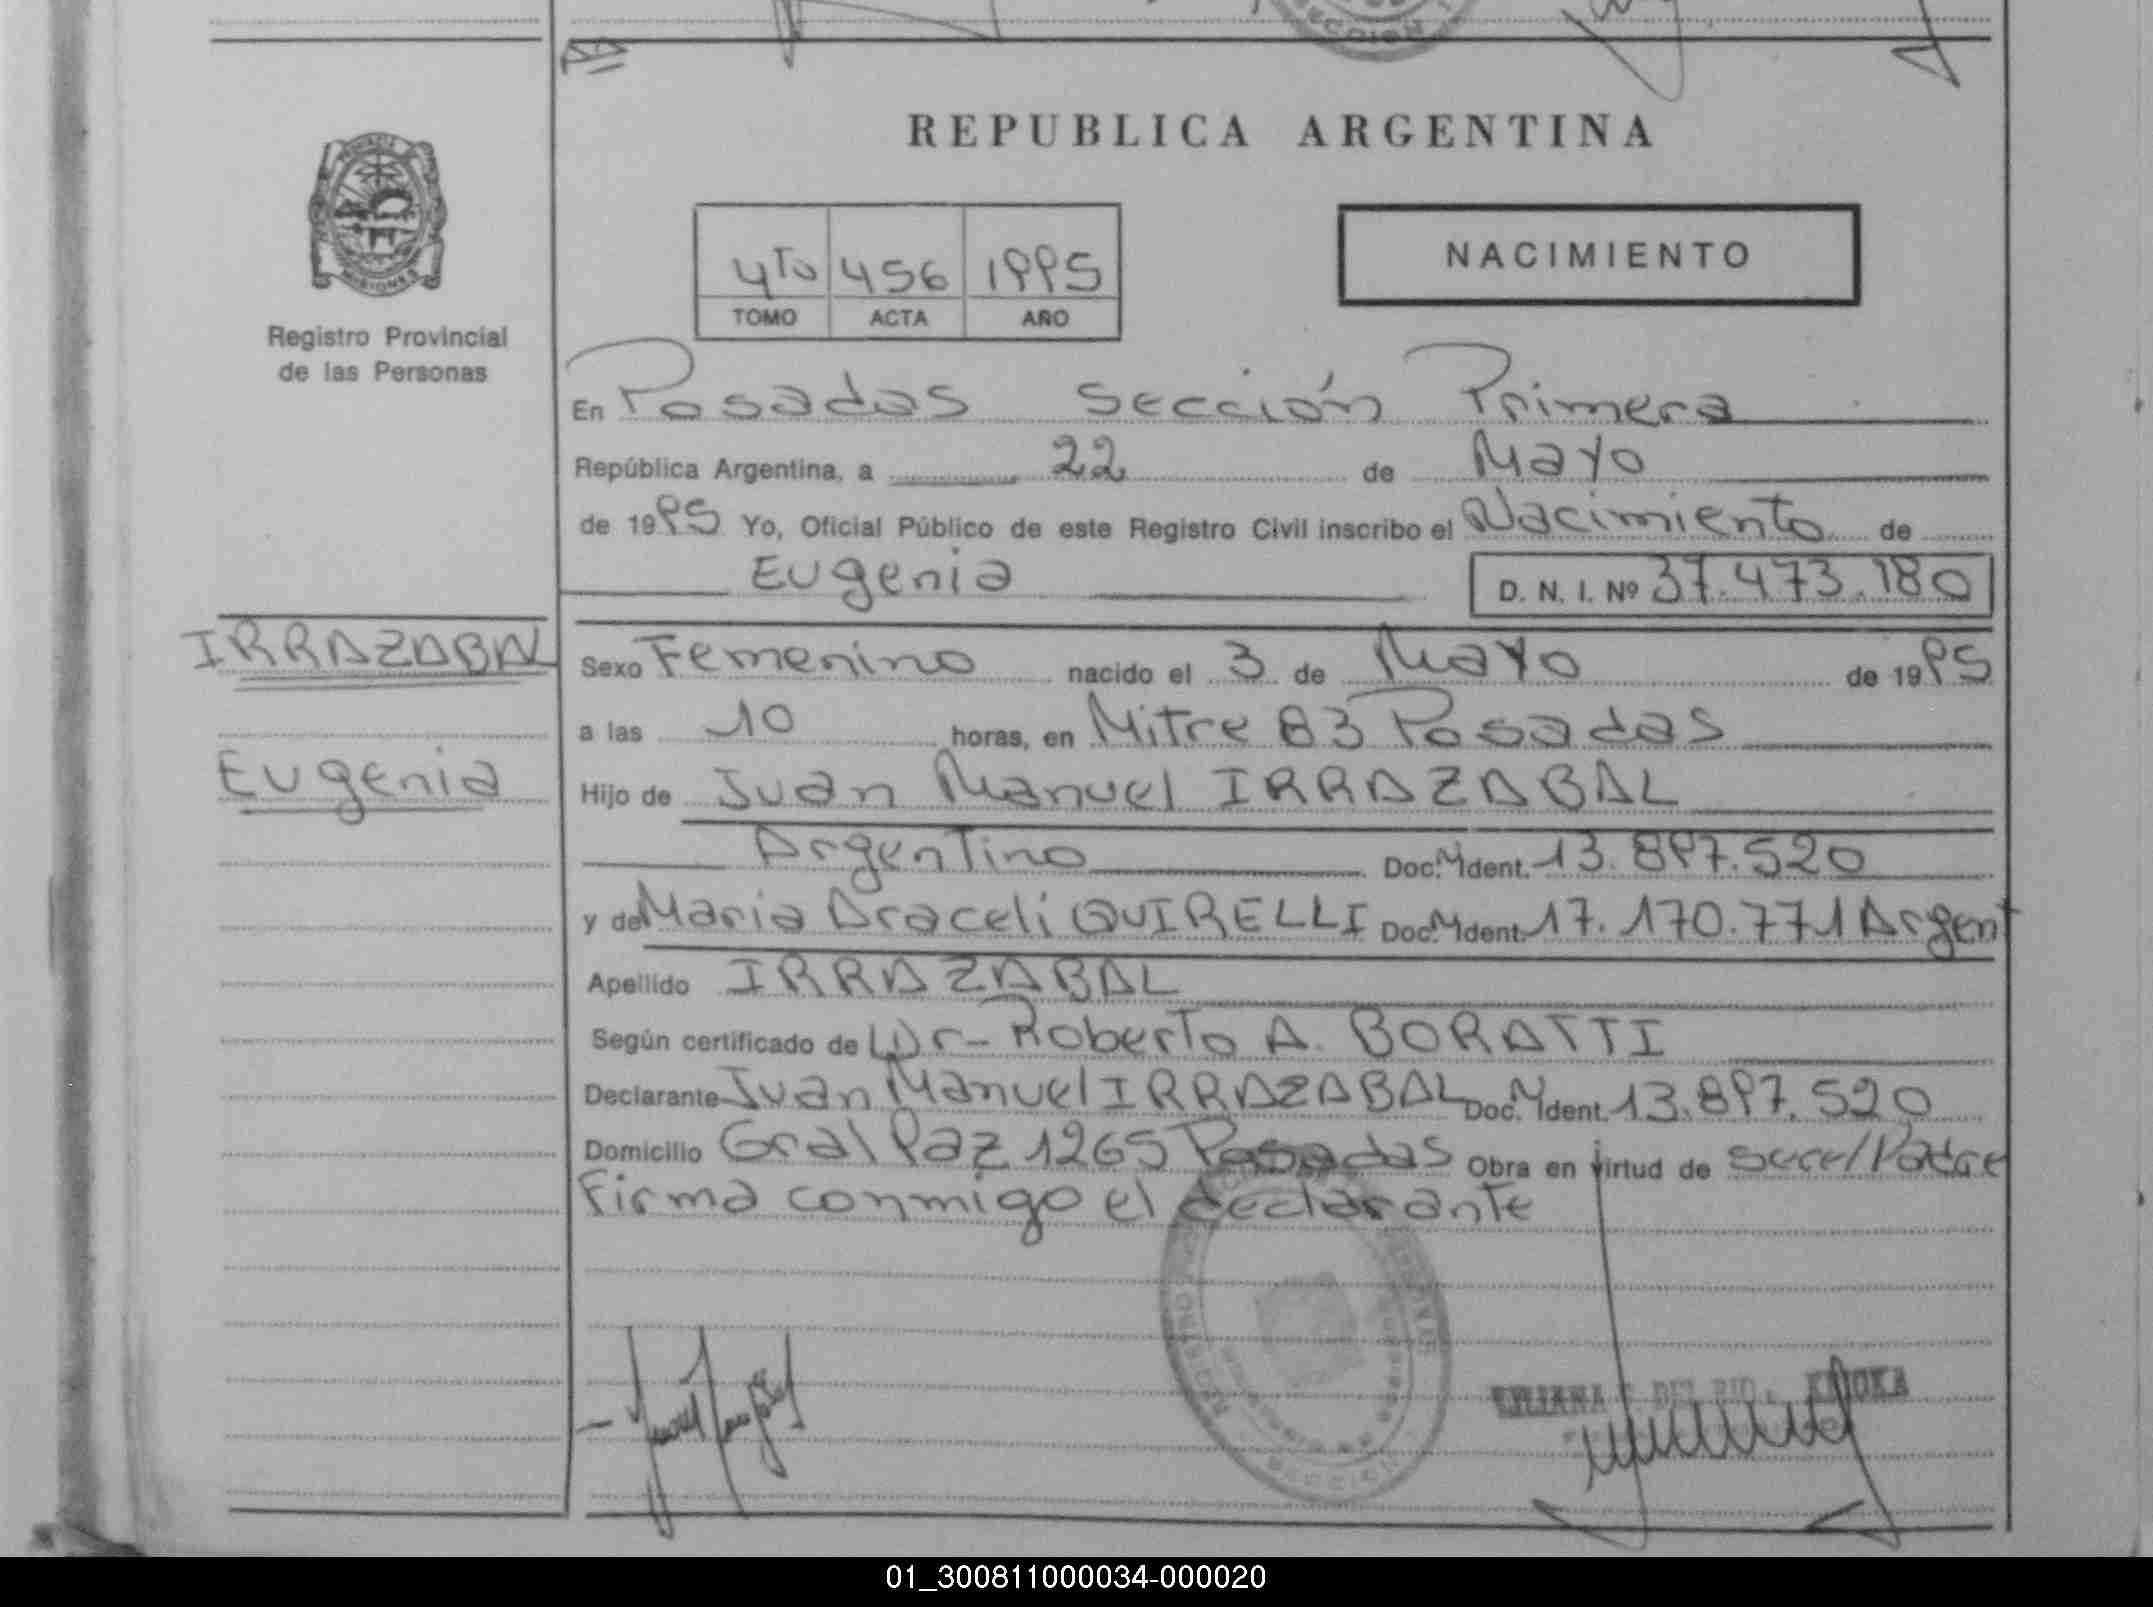 REPUBLICA ARGENTINA
PROVINCIA DE
MISIONES
Registro Provincial
de las Personas
NACIMIENTO
4to 456 1995
TOMO ACTA AÑO
En Posadas sección Primera
República Argentina, a 22 de Mayo
de 1995 Yo, Oficial Público de este Registro Civil inscribo el Nacimiento de
Eugenia D. N. I. Nº 37.473.180
IRRAZABAL
Eugenia
Sexo Femenino nacido el 3 de Mayo de 1995
a las 10 horas, en Mitre 83 Posadas
Hijo de Juan Manuel IRRAZABAL
Argentino Doc. N Ident. 13.897.520
y de Maria Araceli QUIRELLI Doc. N Ident. 17.170.771 Argent
Apellido IRRAZABAL
Según certificado de Dr- Roberto A. BORATTI
Declarante Juan Manuel IRRAZABAL Doc. N Ident. 13.897.520
Domicilio Gral Paz 1265 Posadas Obra en virtud de
Firma conmigo el declarante
REGISTRO
DEL RIO
01_300811000034-000020